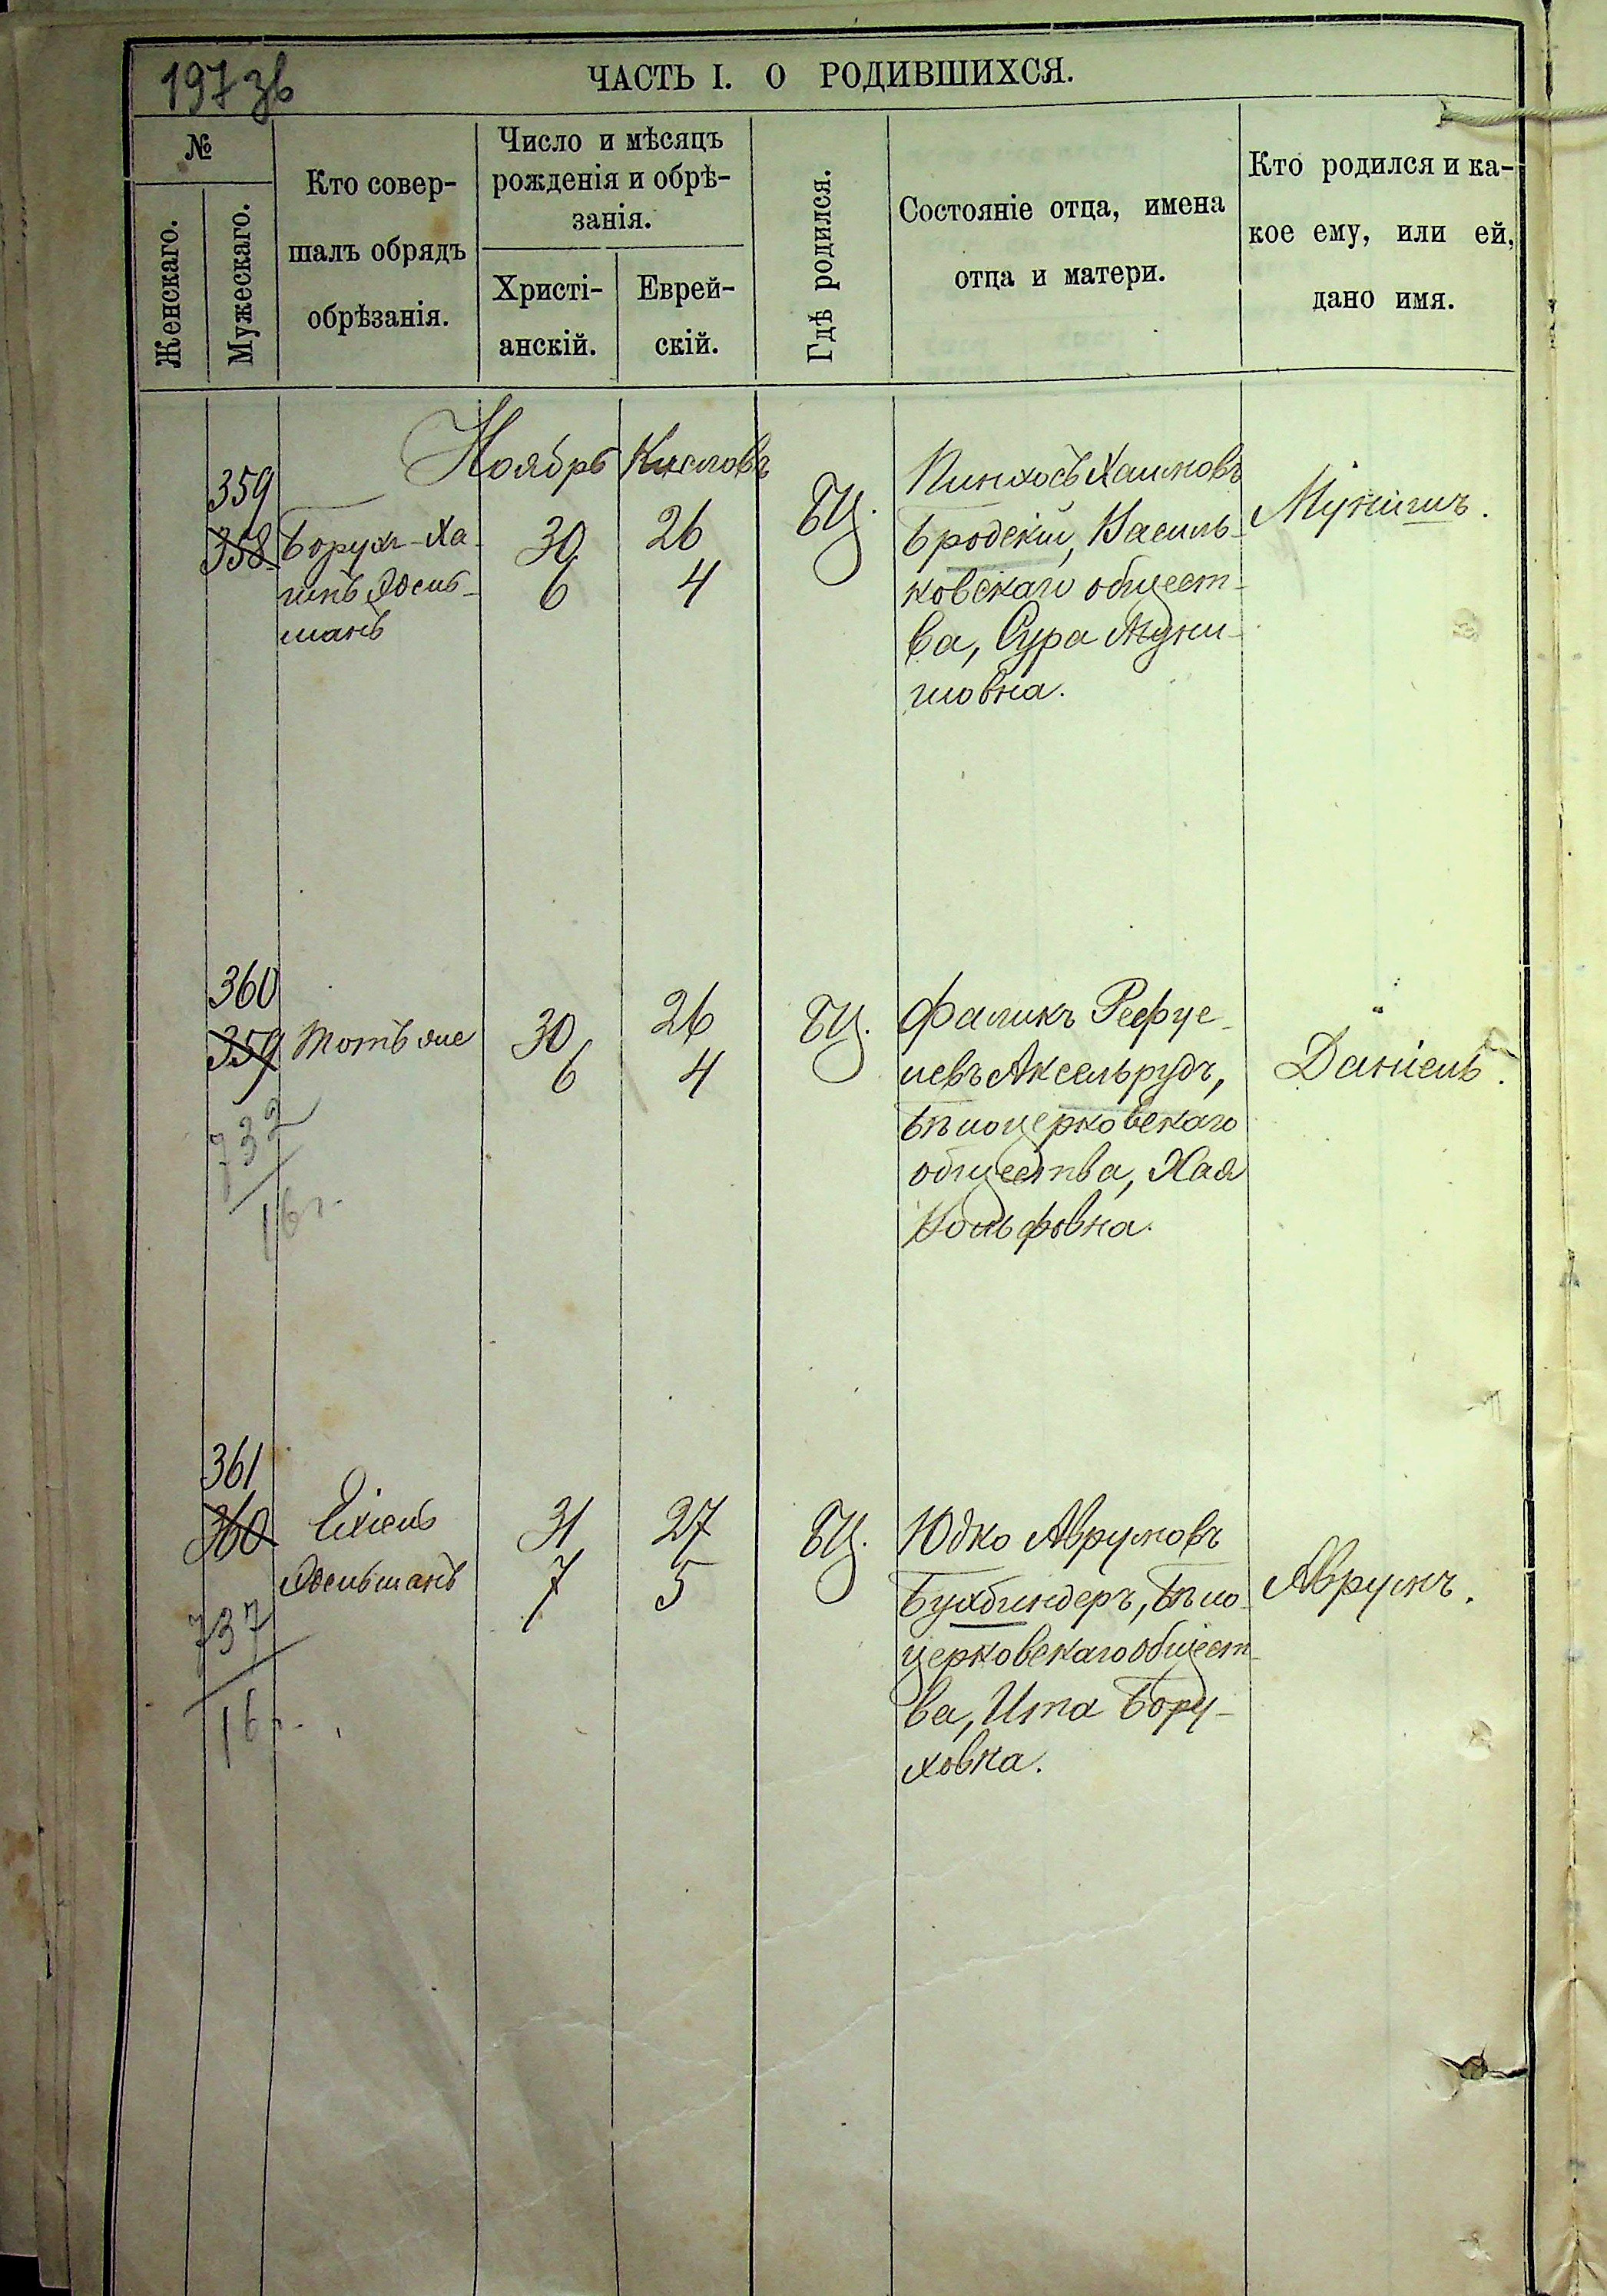 197 зв
ЧАСТЬ I. О РОДИВШИХСЯ.
№
Женскаго.
Мужескаго.
Кто совер-
шалъ обрядъ
обрѣзанія.
Число и мѣсяцъ
рожденія и обрѣ-
занія.
Христі-
анскій.
Еврей-
скій.
Гдѣ родился.
Состояніе отца, имена
отца и матери.
Кто родился и ка-
кое ему, или ей,
дано имя.
Ноябрь Кислевъ
359
358
Борухъ-Ха-
имъ Эдель-
манъ
30
6
26
4
БЦ.
Пинхосъ Хаимовъ
Бродскій, Василь-
ковскаго общест-
ва, Сура Муни-
шовна.
360
359
Тотъ же
30
6
26
4
БЦ.
Фаликъ Рефуе-
левъ Аксельрудъ,
Бѣлоцерковскаго
общества, Хая
Вольфовна.
Даніель.
732
16 г.
361
360
Ехіель
Эдельманъ
31
7
27
5
БЦ.
Юдко Аврумовъ
Бухбиндеръ, Бѣло-
церковскаго общест-
ва, Ита Бору-
ховна.
Аврумъ.
737
16 г.